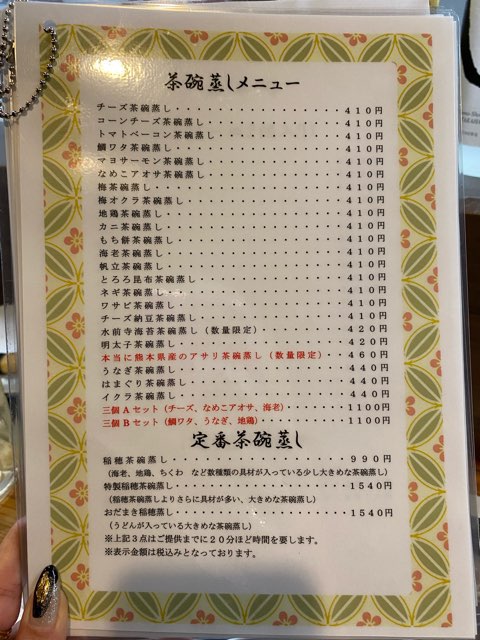 茶碗蒸しメニュー
チーズ茶碗蒸し・・・・・・・・・・・・・・・・・・・・410円
コーンチーズ茶碗蒸し・・・・・・・・・・・・・・・・・410円
トマトベーコン茶碗蒸し・・・・・・・・・・・・・・・・410円
鯛ワタ茶碗蒸し・・・・・・・・・・・・・・・・・・・・410円
マヨサーモン茶碗蒸し・・・・・・・・・・・・・・・・・410円
なめこアオサ茶碗蒸し・・・・・・・・・・・・・・・・・410円
梅茶碗蒸し・・・・・・・・・・・・・・・・・・・・・・410円
梅オクラ茶碗蒸し・・・・・・・・・・・・・・・・・・・410円
地鶏茶碗蒸し・・・・・・・・・・・・・・・・・・・・・410円
カニ茶碗蒸し・・・・・・・・・・・・・・・・・・・・・410円
もち餅茶碗蒸し・・・・・・・・・・・・・・・・・・・・410円
海老茶碗蒸し・・・・・・・・・・・・・・・・・・・・・410円
帆立茶碗蒸し・・・・・・・・・・・・・・・・・・・・・410円
とろろ昆布茶碗蒸し・・・・・・・・・・・・・・・・・・410円
ネギ茶碗蒸し・・・・・・・・・・・・・・・・・・・・・410円
ワサビ茶碗蒸し・・・・・・・・・・・・・・・・・・・・410円
チーズ納豆茶碗蒸し・・・・・・・・・・・・・・・・・・410円
水前寺海苔茶碗蒸し(数量限定)・・・・・・・・・・・・420円
明太子茶碗蒸し・・・・・・・・・・・・・・・・・・・・420円
本当に熊本県産のアサリ茶碗蒸し(数量限定)・・・・・・460円
うなぎ茶碗蒸し・・・・・・・・・・・・・・・・・・・・440円
はまぐり茶碗蒸し・・・・・・・・・・・・・・・・・・・440円
イクラ茶碗蒸し・・・・・・・・・・・・・・・・・・・・440円
三個Aセット(チーズ、なめこアオサ、海老)・・・・・・1100円
三個Bセット(鯛ワタ、うなぎ、地鶏)・・・・・・・・・1100円
定番茶碗蒸し
稲穂茶碗蒸し・・・・・・・・・・・・・・・・・・・・・990円
(海老、地鶏、ちくわ など数種類の具材が入っている少し大きめな茶碗蒸し)
特製稲穂茶碗蒸し・・・・・・・・・・・・・・・・・・・1540円
(稲穂茶碗蒸しよりさらに具材が多い、大きめな茶碗蒸し)
おだまき稲穂蒸し・・・・・・・・・・・・・・・・・・・1540円
(うどんが入っている大きめな茶碗蒸し)
※上記3点はご提供までに20分ほど時間を要します。
※表示金額は税込みとなっております。